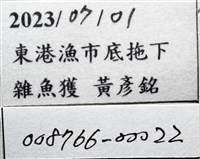 2023/07/01
東港漁市底拖下
雜魚獲 黃彥銘
008766-00022